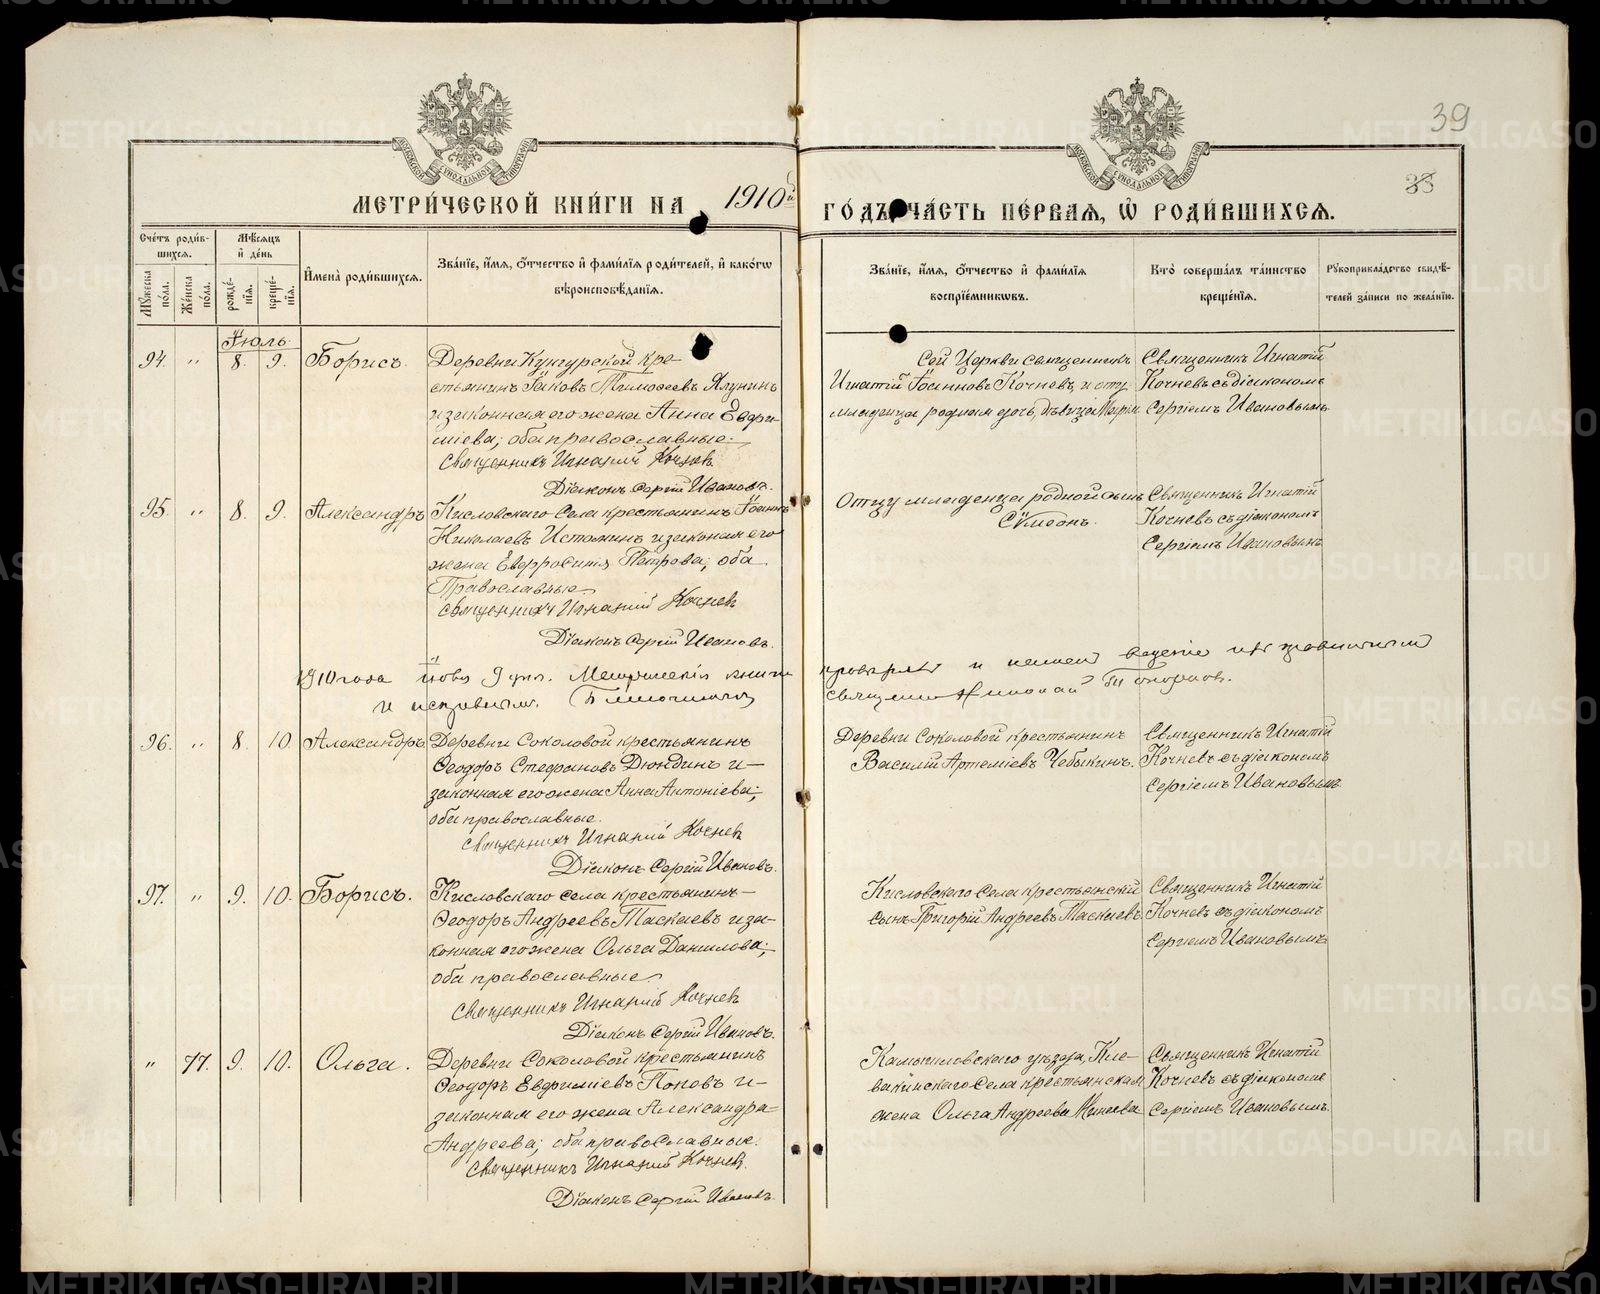 39
33
МЕТРИ́ЧЕСКОЙ КНИ́ГИ НА 1910й ГО́ДЪ, ЧА́СТЬ ПЕ́РВАЯ, Ѿ РОДИ́ВШИХСЯ.
Сче́тъ роди́в-
шихся.
Мꙋ́жеска по́ла.
Же́нска по́ла.
Мѣ́сяцъ
и҆ де́нь
рожде́-
нїя.
креще́-
нїя.
И҆мена̀ роди́вшихся.
Зва́нїе, и҆́мя, ѻ҆́тчество и҆ фами́лїя роди́телей, и҆ како́гѡ
вѣроисповѣ́данїя.
Зва́нїе, и҆́мя, ѻ҆́тчество и҆ фами́лїя
воспрїе́мникѡвъ.
Кто̀ соверша́лъ та́инство
креще́нїя.
Рꙋкоприкла́дство свидѣ́-
телей за́писи по жела́нїю.
Іюль
94. " 8. 9. Борисъ.
Деревни Кунгурской кре-
стьянинъ Іаковъ Тимоѳеевъ Ялунинъ
и законная его жена Анна Евфи-
міева; оба православные.
Священникъ Игнатій Кочнев
Діаконъ Сергій Ивановъ.
Сей Церкви священникъ
Игнатій Іоанновъ Кочневъ, и отцу
младенца родная дочь, дѣвица Марія
Священникъ Игнатій
Кочневъ съ діакономъ
Сергіемъ Ивановымъ.
95. " 8. 9. Александръ
Кисловскаго Села крестьянинъ Іоаннъ
Николаевъ Истоминъ и законная его
жена Евфросинія Петрова; оба
Православные
Священникъ Игнатій Кочнев
Діаконъ Сергій Ивановъ.
Отцу младенца родной сынъ
Сѵмеонъ.
Священникъ Игнатій
Кочневъ съ діакономъ
Сергіемъ Ивановымъ
1910 года 9 дня. Метрическія книги
священникъ Николай
96. " 8. 10. Александръ.
Деревни Соколовой крестьянинъ
Ѳеодоръ Стефановъ Дюндинъ и
законная его жена Анна Антоніева;
оба православные.
Священникъ Игнатій Кочнев
Діаконъ Сергій Ивановъ.
Деревни Соколовой крестьянинъ
Василій Артеміевъ Чебыкинъ.
Священникъ Игнатій
Кочневъ съ діакономъ
Сергіемъ Ивановымъ.
97. " 9. 10. Борисъ.
Кисловскаго села крестьянинъ
Ѳеодоръ Андреевъ Таскаевъ и за-
конная его жена Ольга Данилова;
оба православные
Священникъ Игнатій Кочнев
Діаконъ Сергій Ивановъ.
Кисловскаго Села крестьянскій
сынъ Григорій Андреевъ Таскаевъ
Священникъ Игнатій
Кочневъ съ діакономъ
Сергіемъ Ивановымъ
" 77. 9. 10. Ольга.
Деревни Соколовой крестьянинъ
Ѳеодоръ Евфиміевъ Поповъ и
законная его жена Александра
Андреева; оба православные.
Священникъ Игнатій Кочнев.
Діаконъ Сергій Ивановъ.
Камышловскаго уѣзда, Кле-
вакинскаго Села крестьянская
жена Ольга Андреева Минеева
Священникъ Игнатій
Кочневъ съ діакономъ
Сергіемъ Ивановымъ.
METRIKI.GASO-URAL.RU